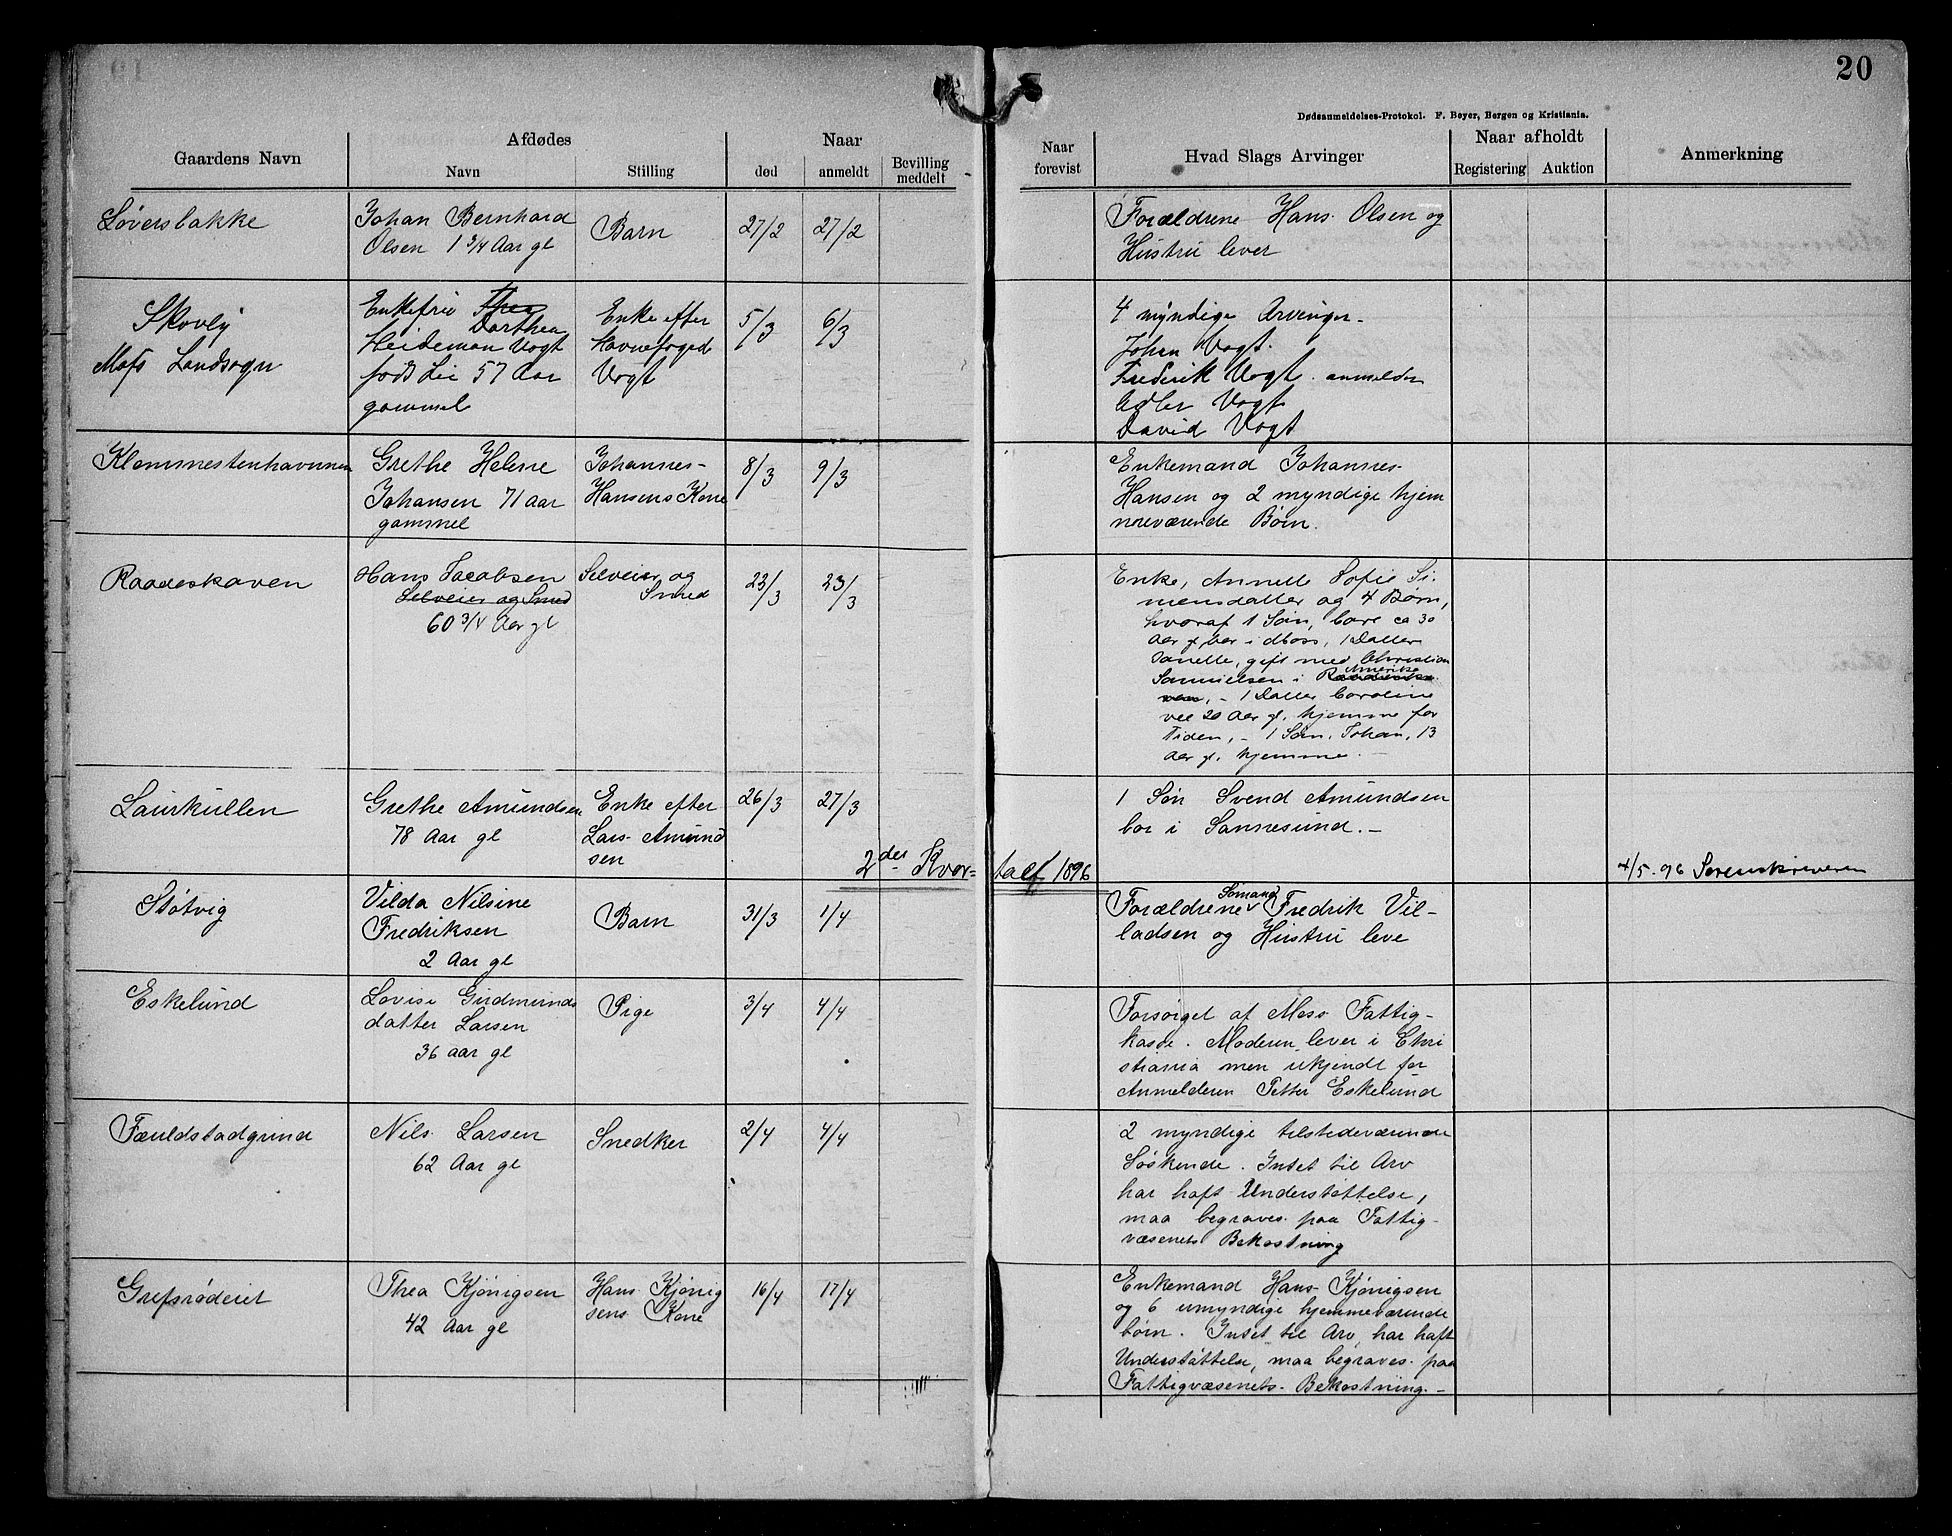 20
Dødsanmeldelses-Protokol. F. Beyer, Bergen og Kristiania.
Gaardens Navn
Afdødes
Navn
Stilling
Naar
død
anmeldt
Bevilling
meddelt
Naar
forevist
Hvad Slags Arvinger
Naar afholdt
Registering
Auktion
Anmerkning
Løversbakke
Johan Bernhard
Olsen 1 3/4 Aar gl
Barn
27/2
27/2
Forældrene Hans Olsen og
Hustru lever
Skovly
Moss Landsogn
Enkefru Thea
Dorthea
Heideman Vogt
født Lie 57 Aar
gammel
Enke efter
Havnefoged
Vogt
5/3
6/3
4 myndige Arvinger
Johan Vogt.
Frederik Vogt. anmelder
Adler Vogt
David Vogt
Klommestenhavnen
Grethe Helene
Johansen 71 Aar
gammel
Johannes
Hansens Kone
8/3
9/3
Enkemand Johannes
Hansen og 2 myndige hjem
meværende Børn.
Raadeskoven
Hans Jacobsen
Selveier og Smed
60 3/4 Aar gl
Selveier og
Smed
23/3
23/3
Enke, Annette Sofie Si-
mensdatter og 4 Børn,
hvoraf 1 Søn,
Aar gl, 1 Datter
Janette, gift med Christian
Amerika
Samuelsen i
1 Datter Caroline
ved 20 Aar gl. hjemme for
Tiden, - 1 Søn, Johan, 13
Aar gl. hjemme.
Laurkullen
Grethe Amundsen
78 Aar gl
Enke efter
Lars Amund
sen
26/3
27/3
1 Søn Svend Amundsen
bor i Sannesund.-
2det Kvar=
tal 1896
4/5. 96 Sorenskriveren
Støtvig
Vilda Nilsine
Fredriksen
2 Aar gl
Barn
31/3
1/4
Sømand
Forældrene Fredrik Vil-
ladsen og Hustru leve
Eskelund
Lovise Gudmunds
datter Larsen
36 aar gl
Pige
3/4
4/4
Forsørget af Moss Fattig-
kasse. Moderen lever i Chri
stiania men ukjendt for
Anmelderen Petter Eskelund
Fæuldstadgrund
Nils Larsen
62 Aar gl
Snedker
2/4
4/4
2 myndige tilstedeværende
Søskende. Intet til Arv
har haft Understøttelse,
maa begraves paa Fattig-
væsenets Bekostning
Grefsrødeiet
Thea Kjønigsen
42 Aar gl
Hans Kjønig
sens Kone
16/4
17/4
Enkemand Hans Kjønigsen
og 6 umyndige hjemmeværende
børn. Intet til Arv, har haft
Understøttelse, maa begraves paa
Fattigvæsenets Bekostning.-